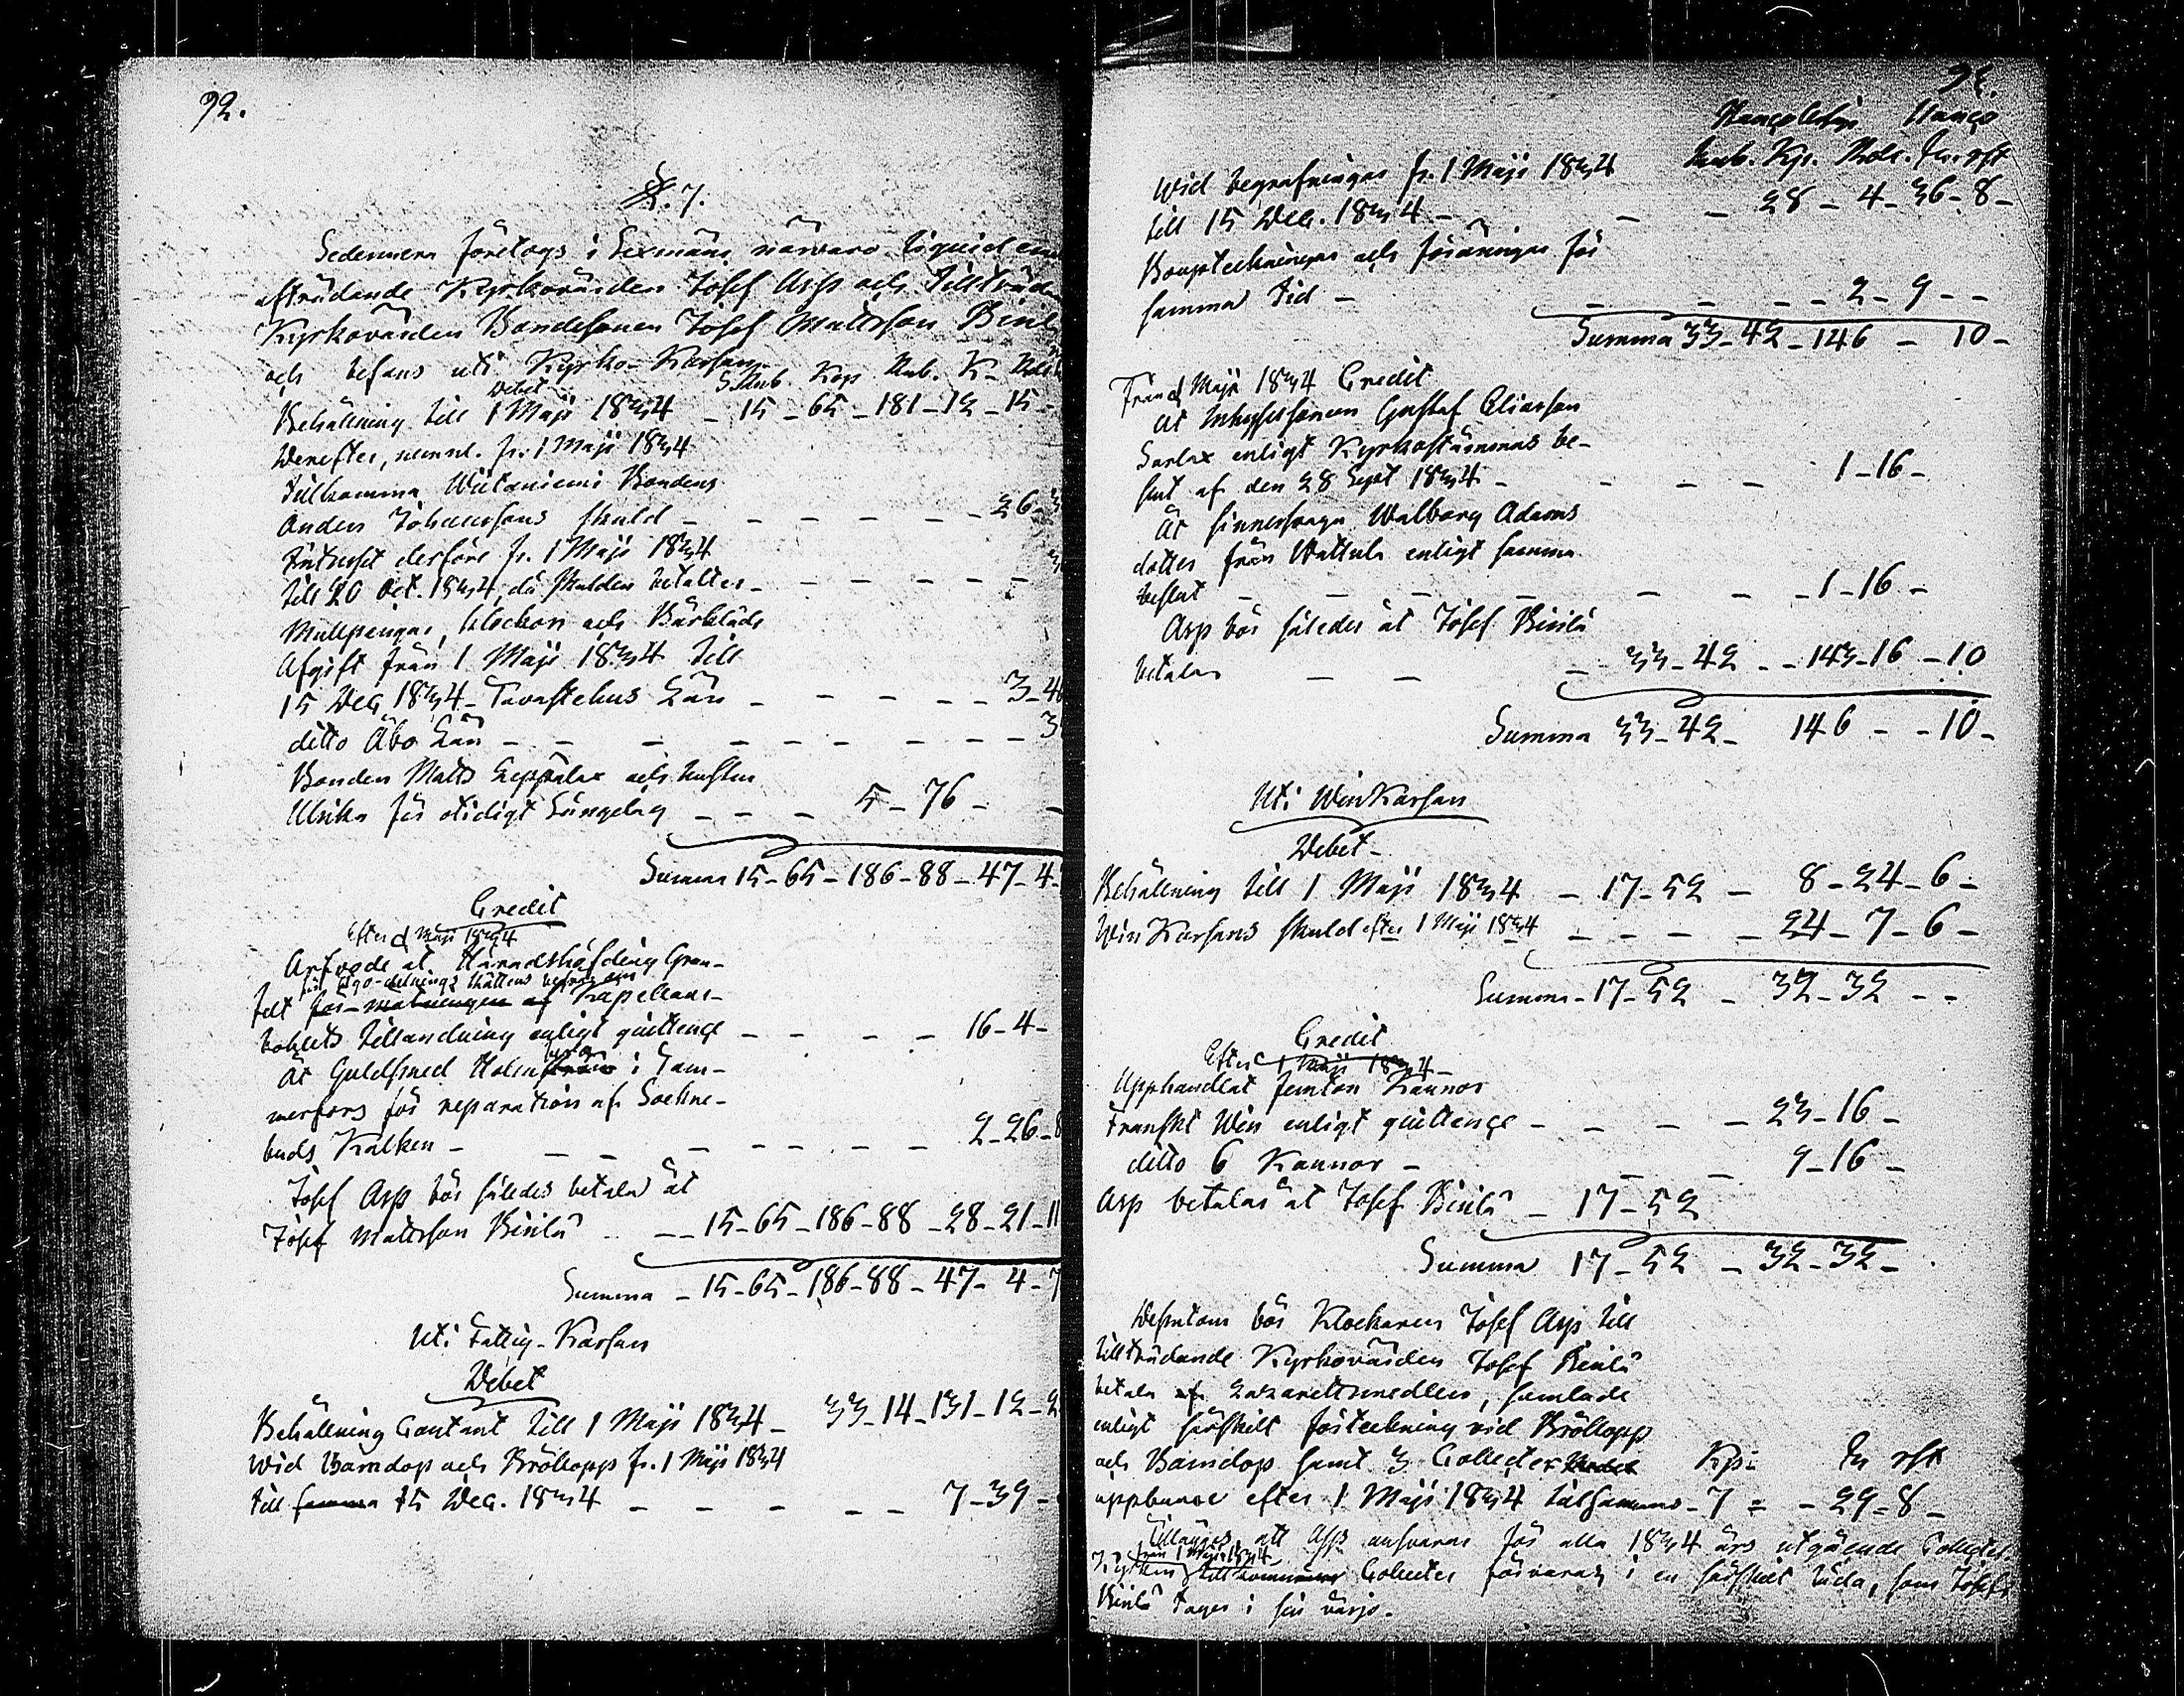 92.
§. 7.
Sedermera företogs i Sexmäns närvaro liquid em
afträdande Kyrkovärden Josef Asp och tillträd
Kyrkovärden Bondesonen Josef Mattsson
och befans uti Kyrko-Kassan
Debet S.Rub. Kop Rub. K-
Behållning till 1 Maji 1834 - 15-65-181-12-15-
Derefter, nemnl. fr. 1 Maji 1834
tillkomma Bondens
Anders Johanssons skuld - - - - - 26-3
Intresset derföre fr. 1 Maji 1834
till 20 Oct. 1834, då skulden betaltes - - - - -
Mullpengar, klockor och Bårkläds
Afgift från 1 Maji 1834 till
15 Dec 1834 - Tavastehus Län - - - - 3-4
ditto Åbo Län - - - - - - - - 3
Bonden Matts och hustru
Ulrika för otidigt Sängelag - - - 5-76-
Summa 15-65-186-88-47-4-
Credit
Efter d Maji 1834
Arfvode åt Häradshöfding Gran-
för Ego-delnings
felt för Kapellans-
bohlets tillandning enligt quittence - - - - 16-4-
Åt Guldsmed i Tam-
merfors för reparation af Sockne-
buds Kalken - - - - - - - 2-26-8
Josef Asp bör således betala åt
Josef Mattsson - - 15-65-186-88-28-21-11
Summa - 15-65-186-88-47-4-7
Uti Fattig-Kassan
Debet
Behållning Contant till 1 Maji 1834 - 33-14-131-12-2
Wid Barndop och Bröllopp fr. 1 Maji 1834
till samma 15 Dec. 1834 - - - - - 7-39-
Rub. Kp. Rdr. sk. rst
Wid begrafningar fr. 1 Maji 1834
till 15 Dec. 1834 - - - 28-4-36-8-
Bouptekningar och för
samma tid - - - - - 2-9--
Summa 33-42-146 - 10-
Från d Maji 1834 Credit
Åt Gustaf Eliasson
enligt Kyrkostämmas be-
slut af den 28 Sept 1834 - - - - 1-16-
Åt sinnessvaga Walborg Adams
dotter från enligt samma
beslut - - - - - - -1-16-
Asp bör således åt Josef
betala - - - 33-42--143-16-10
Summa 33-42- 146 - -10-
Uti WinKassan
Debet-
Behållning till 1 Maji 1834 - 17-52 - 8-24-6-
Win Kassans skuld efter 1 Maji 1834 - - - - 24-7-6-
Summa-17-52 - 32-32 - -
Credit
Efter 1 Maji 1834-
Upphandlat femton Kannor
Franskt Win enligt quittence - - - - 23-16-
ditto 6 Kannor - - - 9-16-
Asp betalar åt Josef - 17-52
Summa 17-52 - 32-32-
Dessutom bör Klockaren Josef Asp till
tillträdande Kyrkovärden Josef
betala af Lazarettsmedlen, samlade
enligt särskilt förtekning vid Bröllopp
och Barndop samt 3 Collecter Kp. sk rst
uppburne efter 1 Maji 1834 tillsammans - 7 = - 29=8-
Tillägges att Asp ansvarar för alla 1834 års utgående Collecter.
från 1 Maji 1834
Kyrkans Collecter förvaras i en särskilt låda, som Josef
tager i sin värjo.